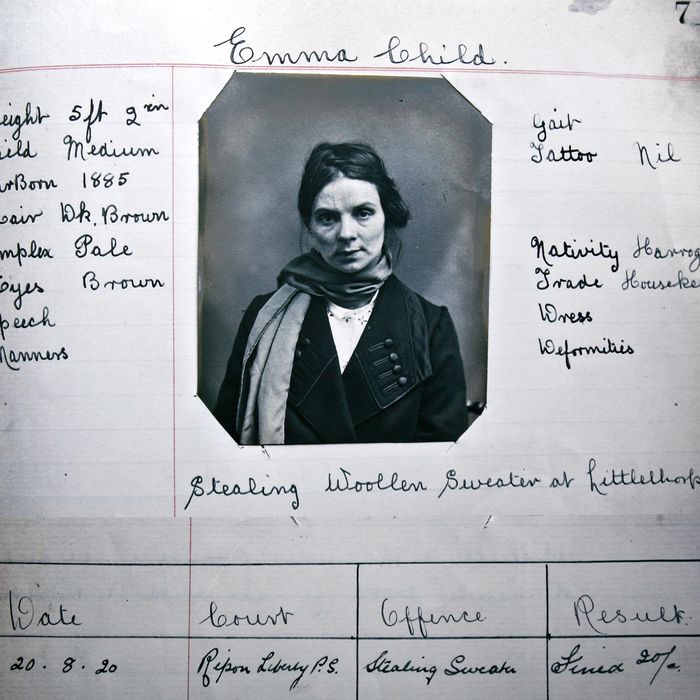 7
Emma Child.
eight 5ft 2in
ild Medium
arBorn 1885
air Dk, Brown
mplex Pale
Eyes Brown
peech
Manners
Gait
Tattoo Nil
Nativity Harrog
Trade Houseke
Dress
Deformities
Stealing Woollen Sweater at Littlethorp
Date Court Offence Result.
20.8.20 Ripon Liberty P.S. Stealing Sweater Fined 20/-